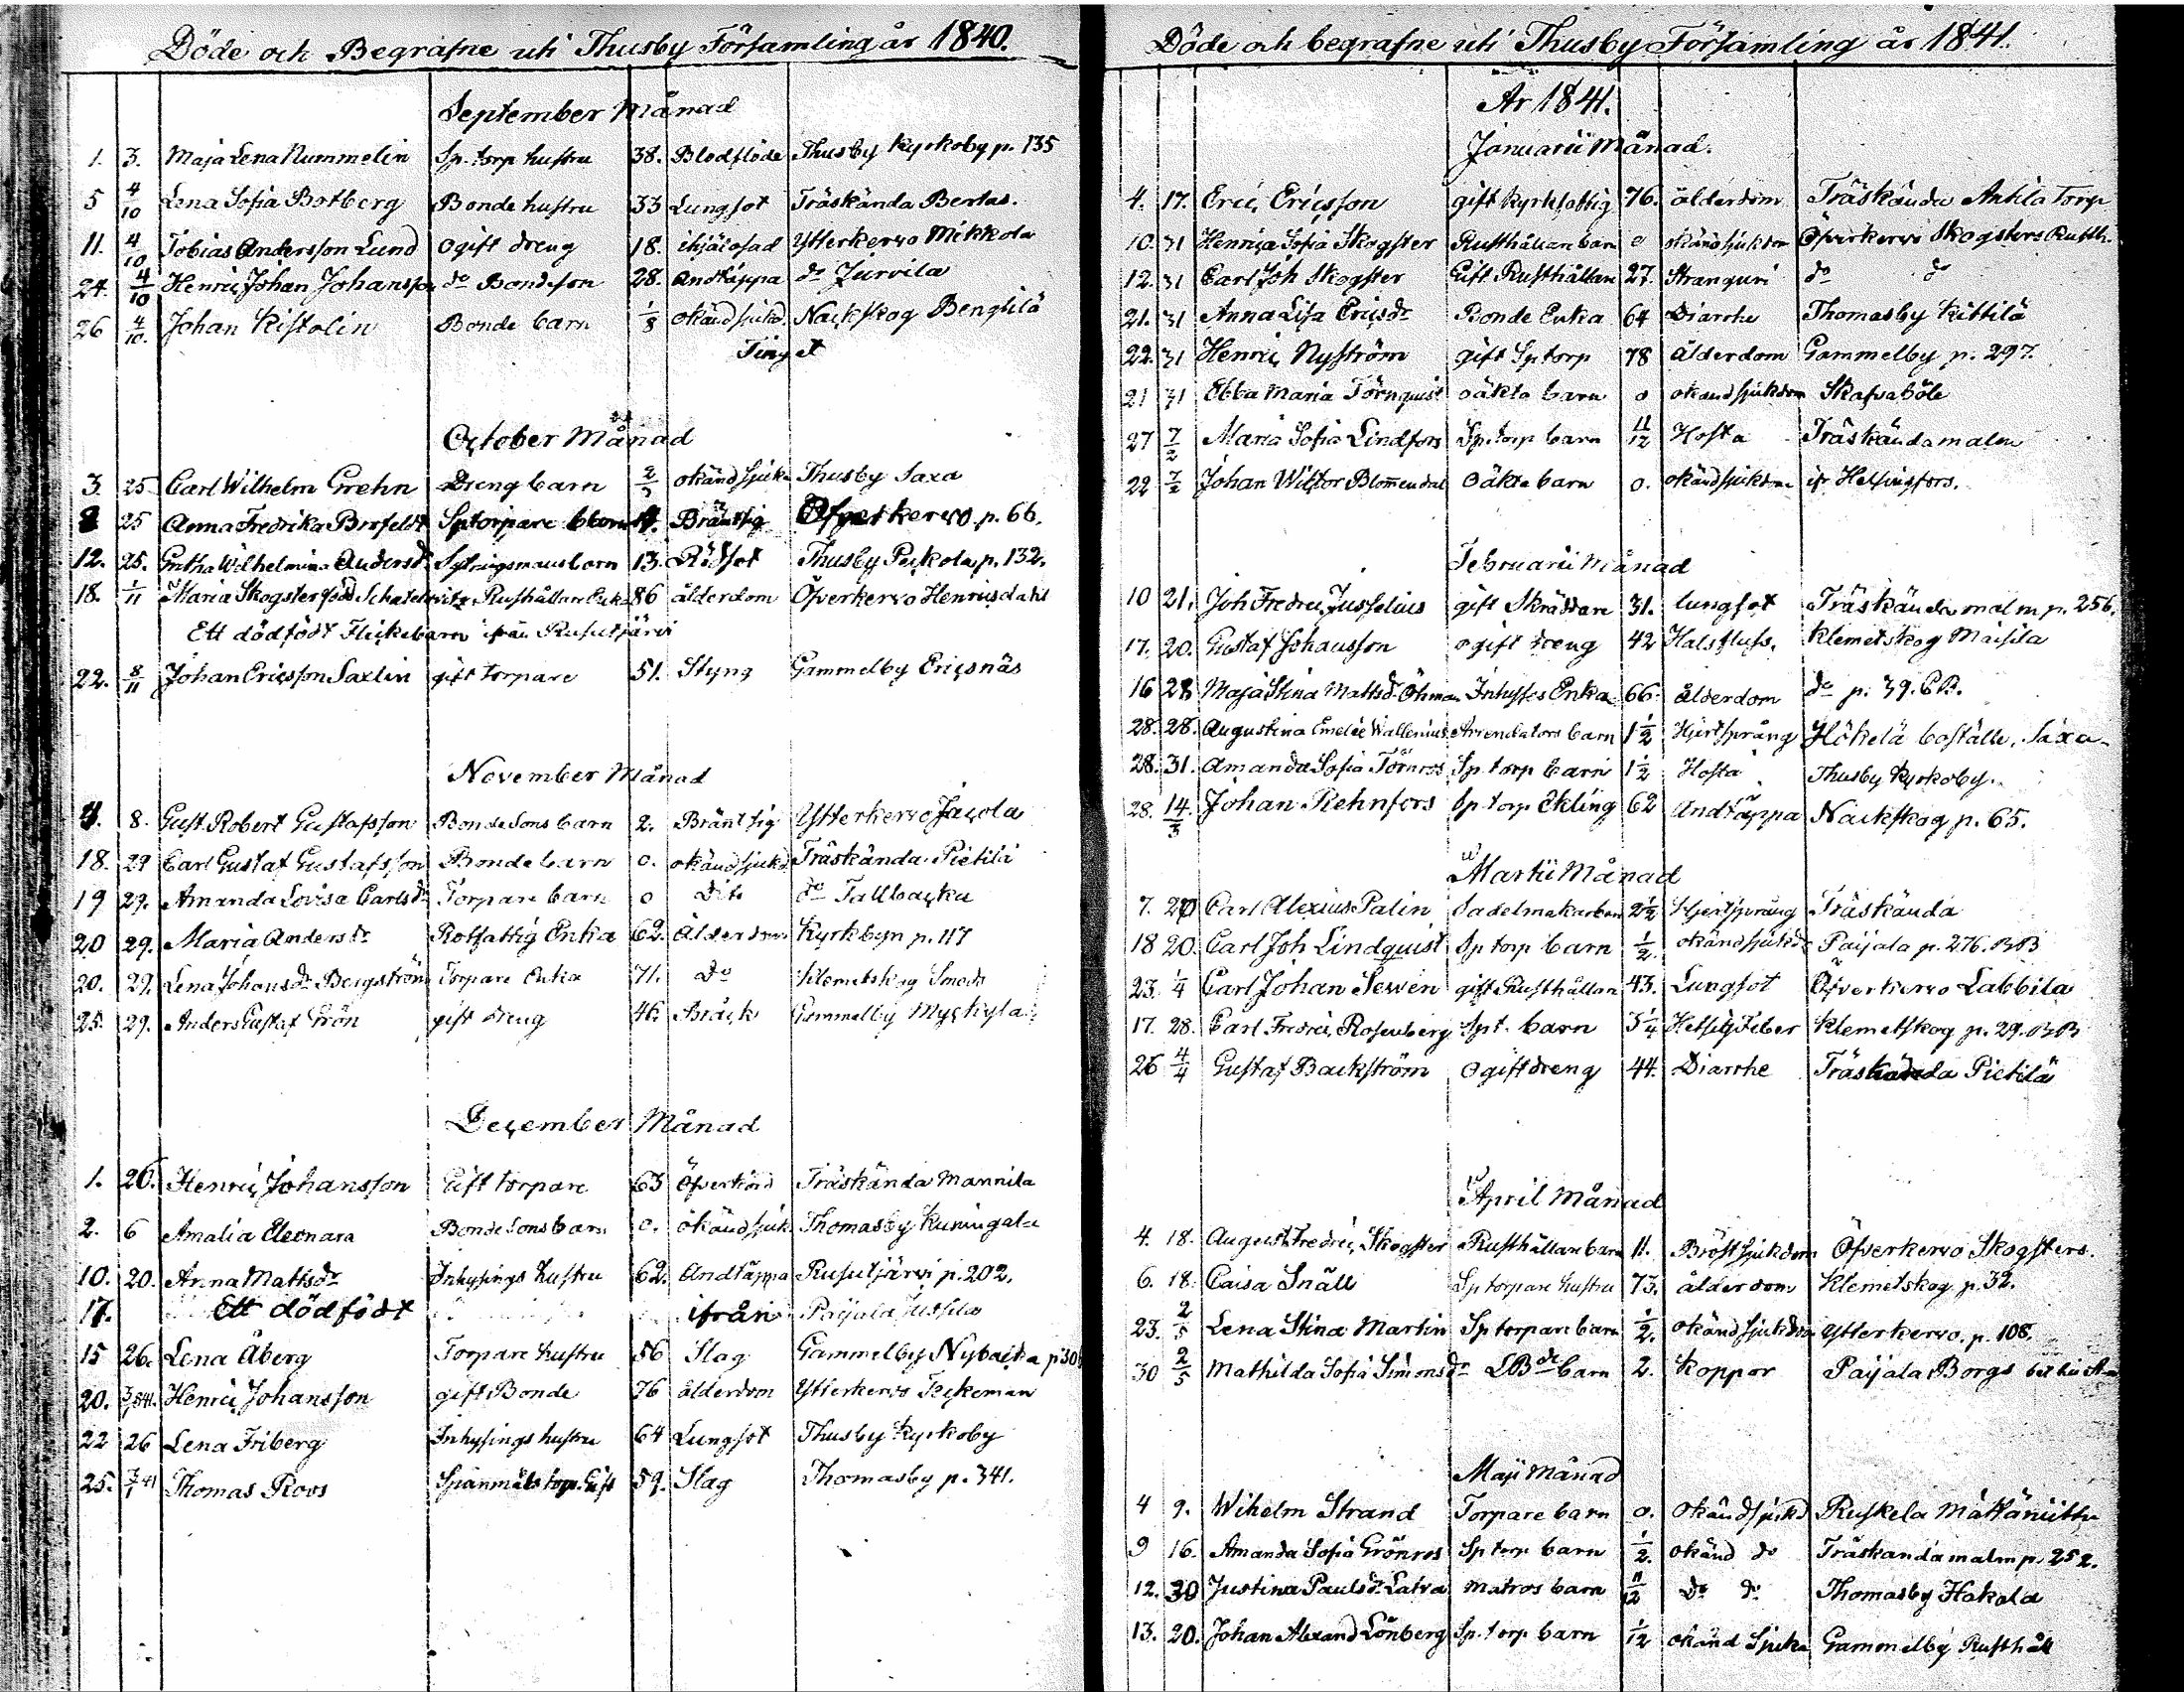 Döde och Begrafne uti Thusby Församling år 1840.
September Månad
1. 3. Maja Lena Nummelin Sp. torp hustru 38. Blodflöde Thusby Kyrkoby p. 135
5 4/10 Lena Sofia Botberg Bonde hustru 33 Lungsot Träskända Bertas.
11. 4/10 Tobias Andersson Lund Ogift dreng 18. ihjälosad Ytterkervo Mikkola
24. 4/10 Henric Johan Johansson do Bondeson 28. Andtäppa do Jurvila
26 4/10. Johan Kistolin Bonde barn 1/8 okänd sjukd. Nackskog Bengtilä
Tinget
October Månad
3. 25 Carl Wilhelm Grehn Dreng barn okänd sjuk. Thusby Saxa
25 Anna Fredrika Sptorpare Bränsjig Öfverkervo p. 66.
12. 25. Gretha Wilhelmina Andersdr Sytningsmans barn 13. Rödsot Thusby Pekola p. 132.
18. 1/11 Maria Skogster född Rusthållare Enka 86 ålderdom Öfverkervo Henricsdahl
Ett dödfödt Flickebarn ifrån Rusutjärvi
22. 8/11 Johan Ericsson Saxlin gift torpare 51. Styng Gammelby Ericsnäs
November Månad
4. 8. Gust. Robert Gustafsson Bonde Sons barn 2. Bräntsig Ytterkervo Jacola
18. 29 Carl Gustaf Gustafsson Bonde barn 0. okänd sjukd. Träskända Pietilä
19 29. Amanda Lovisa Carlsdr Torpare barn 0 Dito do Tallbacka
20 29. Maria Andersdr Rotfattig Enka 62. Ålderdom Kyrkbyn p. 117
20. 29. Lena Johansdr Bergström Torpare Enka 71. do Klemetskog Smeds
25. 29. Anders Gustaf Grön gift dreng 46. Bråck Gammelby Myckylä
December Månad
1. 26. Henric Johansson Gift torpare 63 Öfverkörd Träskända Mannila
2. 6 Amalia Eleonara Bonde Sons barn 0. okänd sjuk. Thomasby Kuningala
10. 20. Anna Mattsdr Inhysings hustru 62. Andtäppa Rusutjärvi p. 202.
17. Ett dödfödt ifrån Paijala Jussila
15 26. Lena Åberg Torpare hustru 56 Slag Gammelby Nybacka
20. Henric Johansson gift Bonde 76 ålderdom Ytterkervo
22 26 Lena Friberg Inhysings hustru 64 Lungsot Thusby Kyrkoby
25. Thomas Roos Spanmåls torp. Gift 59. Slag Thomasby p. 341.
Döde och begrafne uti Thusby Församling år 1841.
År 1841.
Januarii Månad.
4. 17. Eric Ericsson gift kyrkfattig 76. ålderdom Träskända Antila Torp
10. 31 Henrica Sofia Skogster Rusthållare barn 0 okänd sjukdom Öfverkervo Skogsters Rusth.
12. 31 Carl Joh Skogster Gift Rusthållare 27. Stranguri do do
21. 31 Anna Lisa Ericsdr Bonde Enka 64 Diarrhe Thomasby Kittilä
22. 31 Henric Nyström gift Sp torp 78 ålderdom Gammelby p. 297.
21 31 Ebba Maria Törnquist oäkta barn 0 okänd sjukdom Skafvaböle
27 7/2 Maria Sofia Lindfors Sp. torp barn 11/12 Hosta Träskändamalm
22 7/2 Johan Wiktor Blomendal Oäkta barn 0. okänd sjukdom ifr Helsingfors.
Februarii Månad
10 21. Joh Fredric Jusselius gift Skräddare 31. lungsot Träskända malm p. 256.
17. 20. Gustaf Johansson ogift dreng 42 Halsfluss. Klemetskog Maisila
16 28 Maja Stina Mattsdr Öhman Inhyses Enka 66. Ålderdom do p. 39. BB.
28. 28. Augustina Emelie Wallenius Arrendators barn 1 1/2 Hjertsprång Hökelä boställe, Saxa
28. 31. Amanda Sofia Törnros Sp. torp barn 1 1/2 Hosta Thusby Kyrkoby.
28. 14/3 Johan Rehnfors Sp torp Ekling 62 Andtäppa Nackskog p. 65.
Martii Månad
7. 20 Carl Alexius Palin Sadelmakarbarn 2 1/2 Hjertsprång Träskända
18 20. Carl Joh Lindquist Sp torp barn 1/2. okänd sjukd. Paijala p. 276. BB
23. 1/4 Carl Johan Sewen gift Rusthållare 43. Lungsot Öfverkervo Labbila
17. 28. Carl Fredric Rosenberg Spt. barn 3 1/4 Hetsig Feber Klemetskog p. 29. BB
26 4/4 Gustaf Backström Ogift dreng 44. Diarrhe Träskända Pietilä
April Månad
4. 18. August Fredric Skogster Rusthållare barn 11. Bröstsjukdom Öfverkervo Skogsters.
6. 18. Caisa Snäll Sp torpare hustru 73. ålderdom Klemetskog p. 32.
23. 2/5 Lena Stina Martin Sp torpare barn 1/2. okänd sjukdom Ytterkervo. p. 108.
30 2/5 Mathilda Sofia Simonsdr barn 2. Koppor Paijala Borgs
Maji Månad
4 9. Wihelm Strand Torpare barn 0. Okänd sjukd Ruskela Mattäniittu
9 16. Amanda Sofia Grönros Sp torp barn 1/2. okänd do Träskanda malm p. 252.
12. 30 Justina Paulsdr Latva Matros barn 11/12 Do do Thomasby Hakala
13. 20. Johan Alexand Lönberg Sp. torp barn 1/12 okänd Sjuka Gammelby Rusthåll